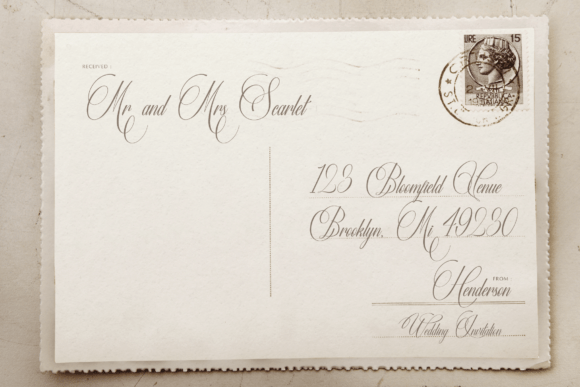 RECEIVED :
Mr and Mrs Scarlet
LIRE 15
123 Bloomfield Venue
Brooklyn, Mi 49230
FROM :
Henderson
Wedding Invitation